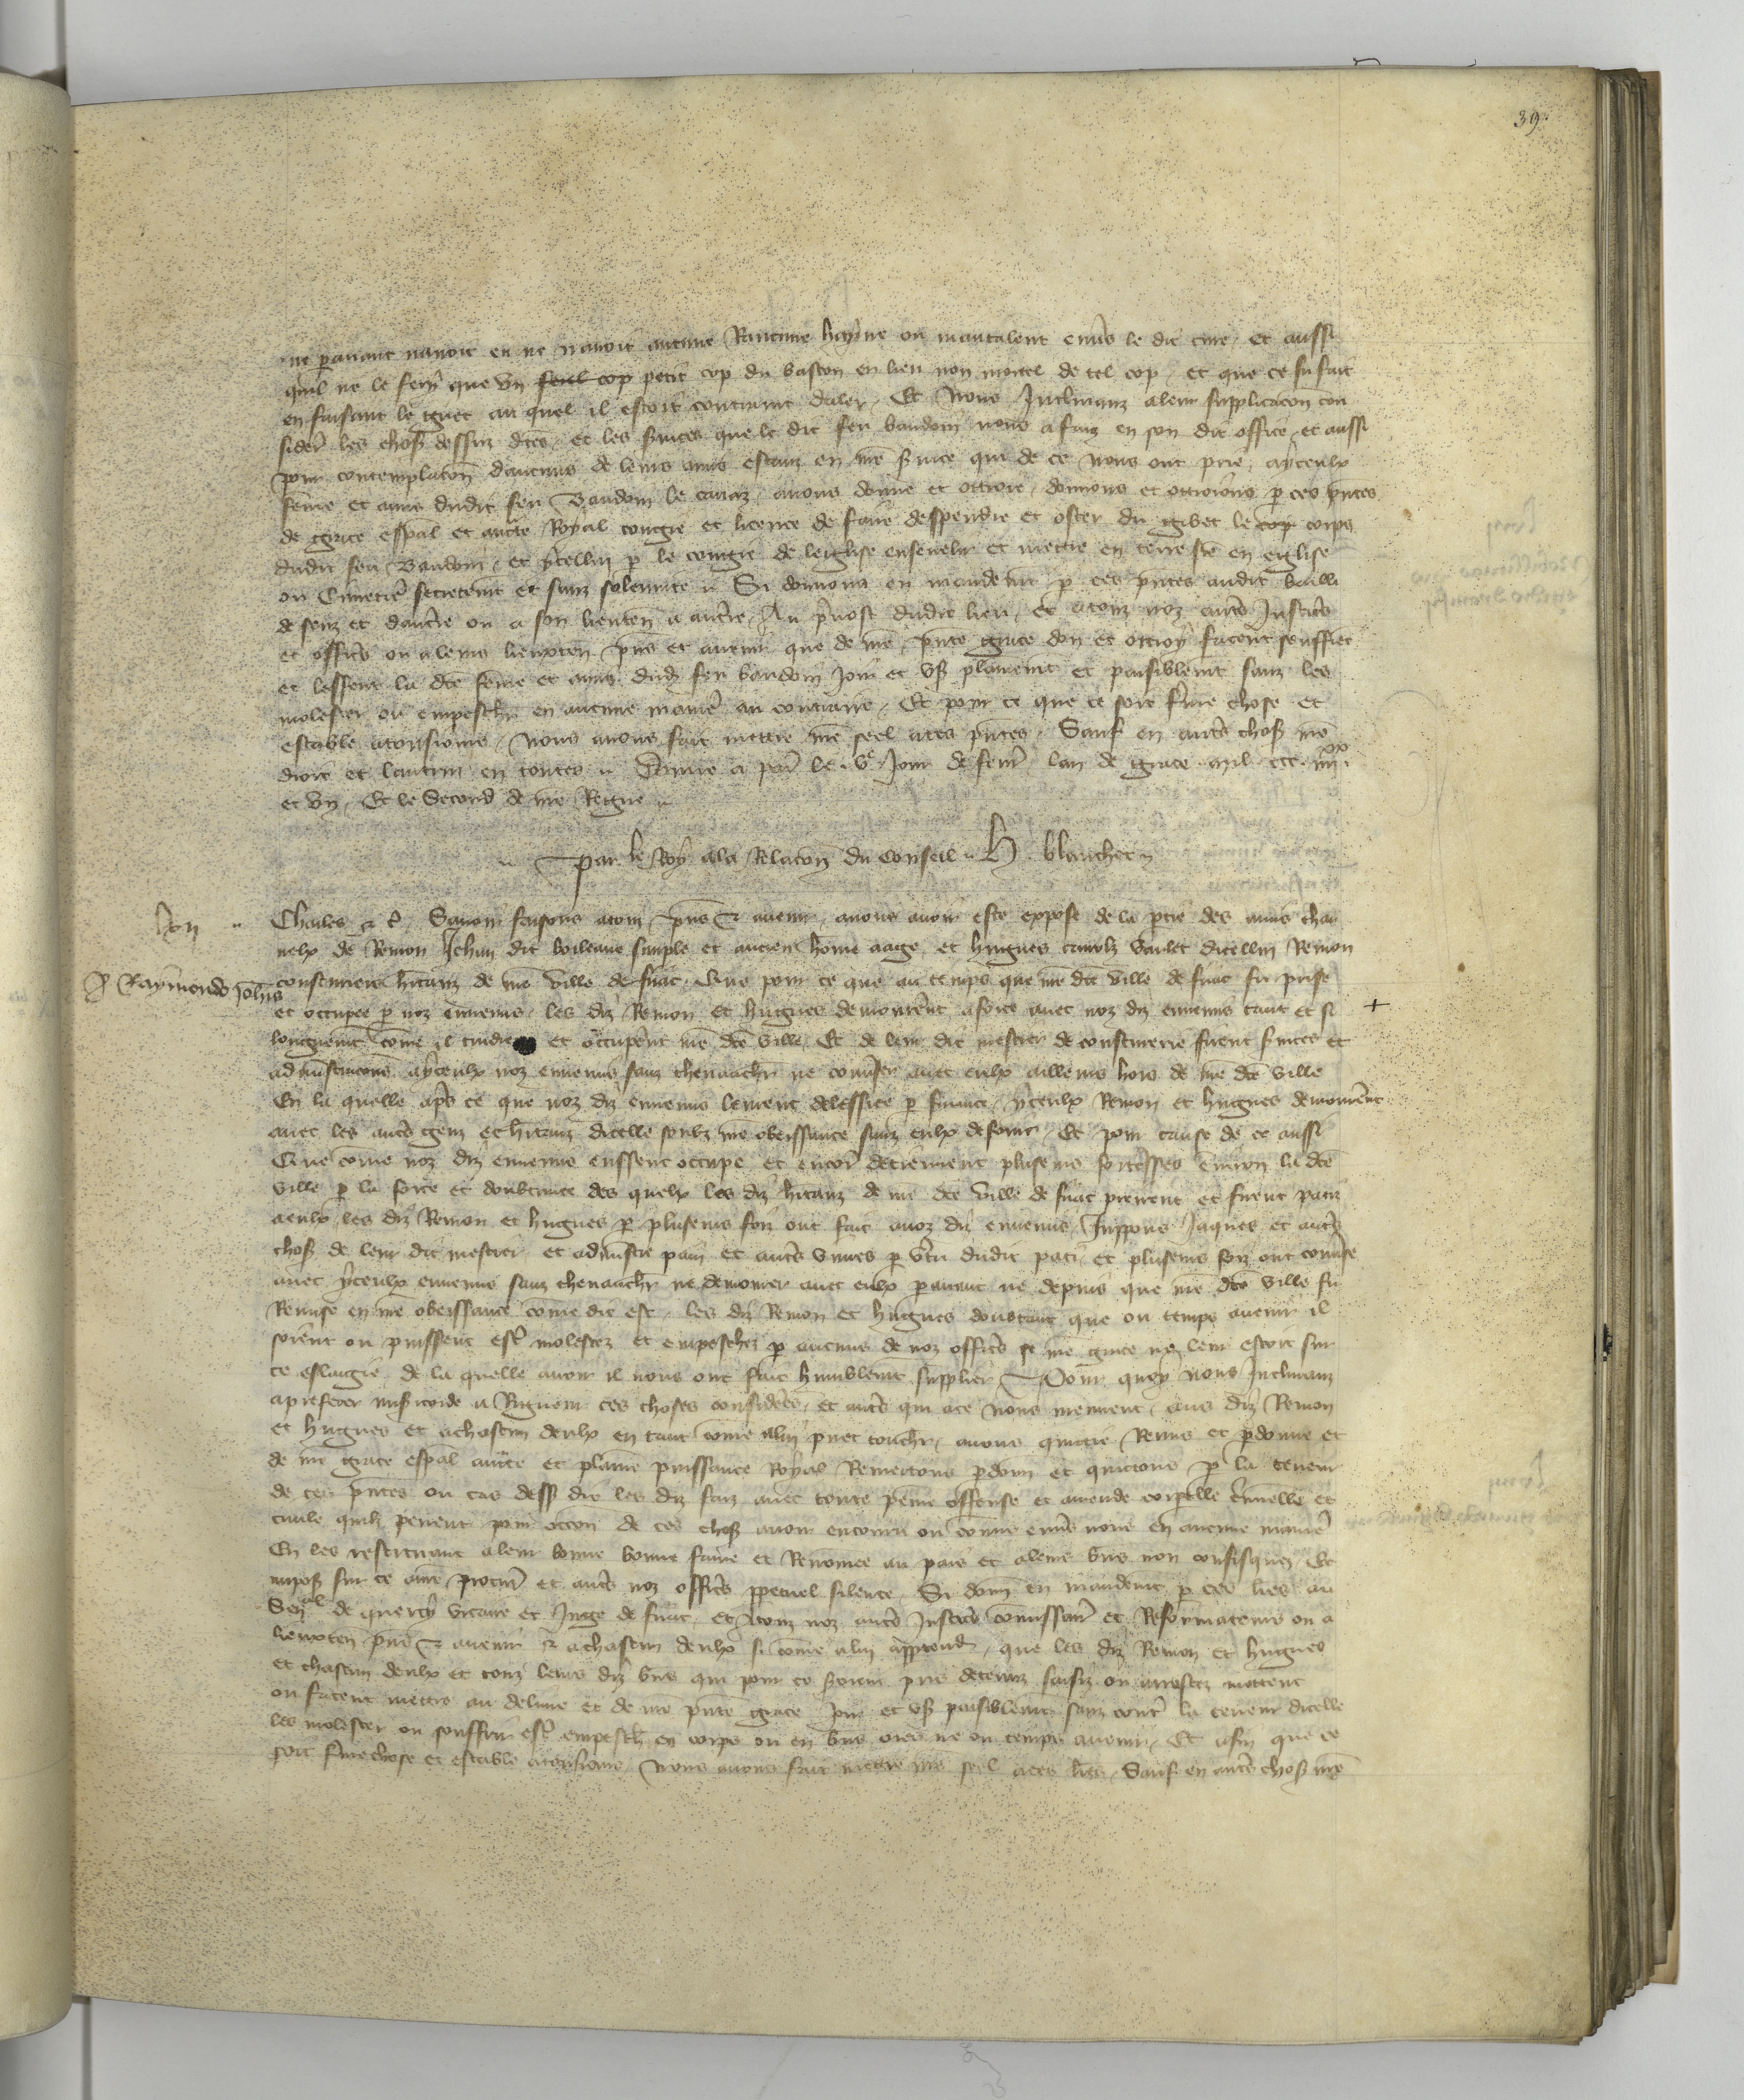 39
ne pavant navoit eu ne navoit aucune Rancune hayne ou mautalent envs le dit cure, et aussi
quil ne le fery que un seul cop petit cop du baston en lieu non mortel de tel cop, et que ce fu fait
en faisant le guet au quel il estoit contraint daler, Et Nous Inclinanz aleur supplicacon con
sider les chos dessus dites, et les svices que le dit feu baudoin nous a faiz en son dit office, et aussi
pour contemplacon daucuns de leurs amis estanz en nre svice qui de ce nous ont prie, ayceulx
feme et amis dudit feu Baudoin le avons donne et ottroie, donnons et ottroions p ces pntes
de grace espal et aucte Royal congie et licence de faire despendre et oster du gibet le cop corps
dudit feu Baudoin, et ycellui p le congie de leglise ensevelir et mettre en terre ste en eglise
ou Cimetiere secretemt et sanz solennite Si donnons en mandemt p ces pntes audit bailli
de senz et daucrre ou a son lieuten a aucrre, Au pvost dudit lieu, et atouz noz autrs Justices
et offics ou aleurs lieuxten pns et avenir que de nre pnte grace don et ottroy facent seuffrent
et lessent la dte feme et amis dud feu baudoin joir et us plainemt et paisiblemt sanz les
molester ou empescher en aucune maniere au contraire, Et pour ce que ce soit ferme chose et
estable atousiours, Nous avons fait mettre nre seel aces pntes, Sauf en autrs chos nre
droit et lautrui en toutes Donne a par le ve Jour de fevr lan de grace mil ccc iiiixx
et un, Et le Second de nre Regne
Par le Roy ala Relacon du Conseil H. blanchet
Charles &c. Savoir faisons atouz pns & avenir, avons avoir este expose de la ptie des amis char
nelx de Remon Jehan dit boileaue simple et ancien home aage, et hugues vaslet dicellui Remon
P Raymondo Johis
cousturiers hitanz de nre ville de fiiac, Que pour ce que au temps que nre dte ville de fiiac fu prise
et occupee p noz ennemis, les diz Remon et hugues demourent aforce avec noz diz ennemis tant et si
longuemt come il et occupent nre dte ville, Et de leur dit mestier de cousturerie firent svices et
admistracons ayceulx noz ennemis sanz chevaucher ne conser avec eulx ailleurs hors de nre dte ville
En la quelle aps ce que noz diz ennemis leurent delessiee p finance, yceulx Remon et hugues demourent
avec les autrs gens et hitanz dicelle soubz nre obeissance sanz eulx defouir, Et pour cause de ce aussi
Que come noz diz ennemis eussent occupe et encor detiennent pluseurs forteresses environ la dte
ville p la force et doubtance des quelx les diz hitanz de nre dte ville de fiiac prirent et firent patiz
aeulx, les diz Remon et hugues p pluseurs foiz ont fait anoz diz ennemis Juppons Jaques et autrs
chos de leur dit mestier et admistre pain et autrs vivres p vtu dudit pati, et pluseurs foiz ont converse
avec yceulx ennemis sanz chevaucher ne demourer avec eulx pavant ne depuis que nre dte ville fu
Remise en nre obeissance come dit est, les diz Remon et hugues doubtant que ou temps avenir il
soient ou puissent estre molestez et empeschez p aucuns de noz offics se nre grace ne leur estoit sur
ce eslargie, de la quelle avoir il nous ont fait humblemt supplier Pour quoy nous Inclinanz
apreferer misicorde a Riguour ces choses considerees, et autrs qui ace nous mennent, aus diz Remon
et hugues et achascun deulx en tant come alui puet toucher, avons quictie Remis et pdonne et
de nre grace espal aucte et plaine puissance Royal Remettons pdonn et quictons p la teneur
de ces pntes ou cas dess dit les diz faiz avec toute peine offense et amende corpelle crminelle et
civile quilz pevent pour occon de ces chos avoir encouru ou comis envs nous en aucune maniere
En les restituant aleur bonne bonne fame et Renomee au pais et aleurs bns non confisquez Et
impos sur ce anre procur et autrs noz offics ppetuel silence, Si donn en mandemt p ces lres au
Senal de quercy viraire et Juge de fiiac, et Atouz noz autrs Justics comissair et Reformateurs ou a
lieuxten pns & avenir & achascun deulx si come alui apptend, que les diz Remon et hugues
et chascun deulx et touz leurs diz bns qui pour ce seroient pris detenuz saisiz ou arrestez mettent
ou facent mettre au delivre et de nre pnte grace joir et us paisiblemt sanz contr la teneur dicelle
les molester ou souffrir estre empesch en corps ou en bns ores ne ou temps avenir, Et afin que ce
soit ferme chose et estable atousiours, Nous avons fait mettre nre seel aces lres, Sauf en autrs chos nre